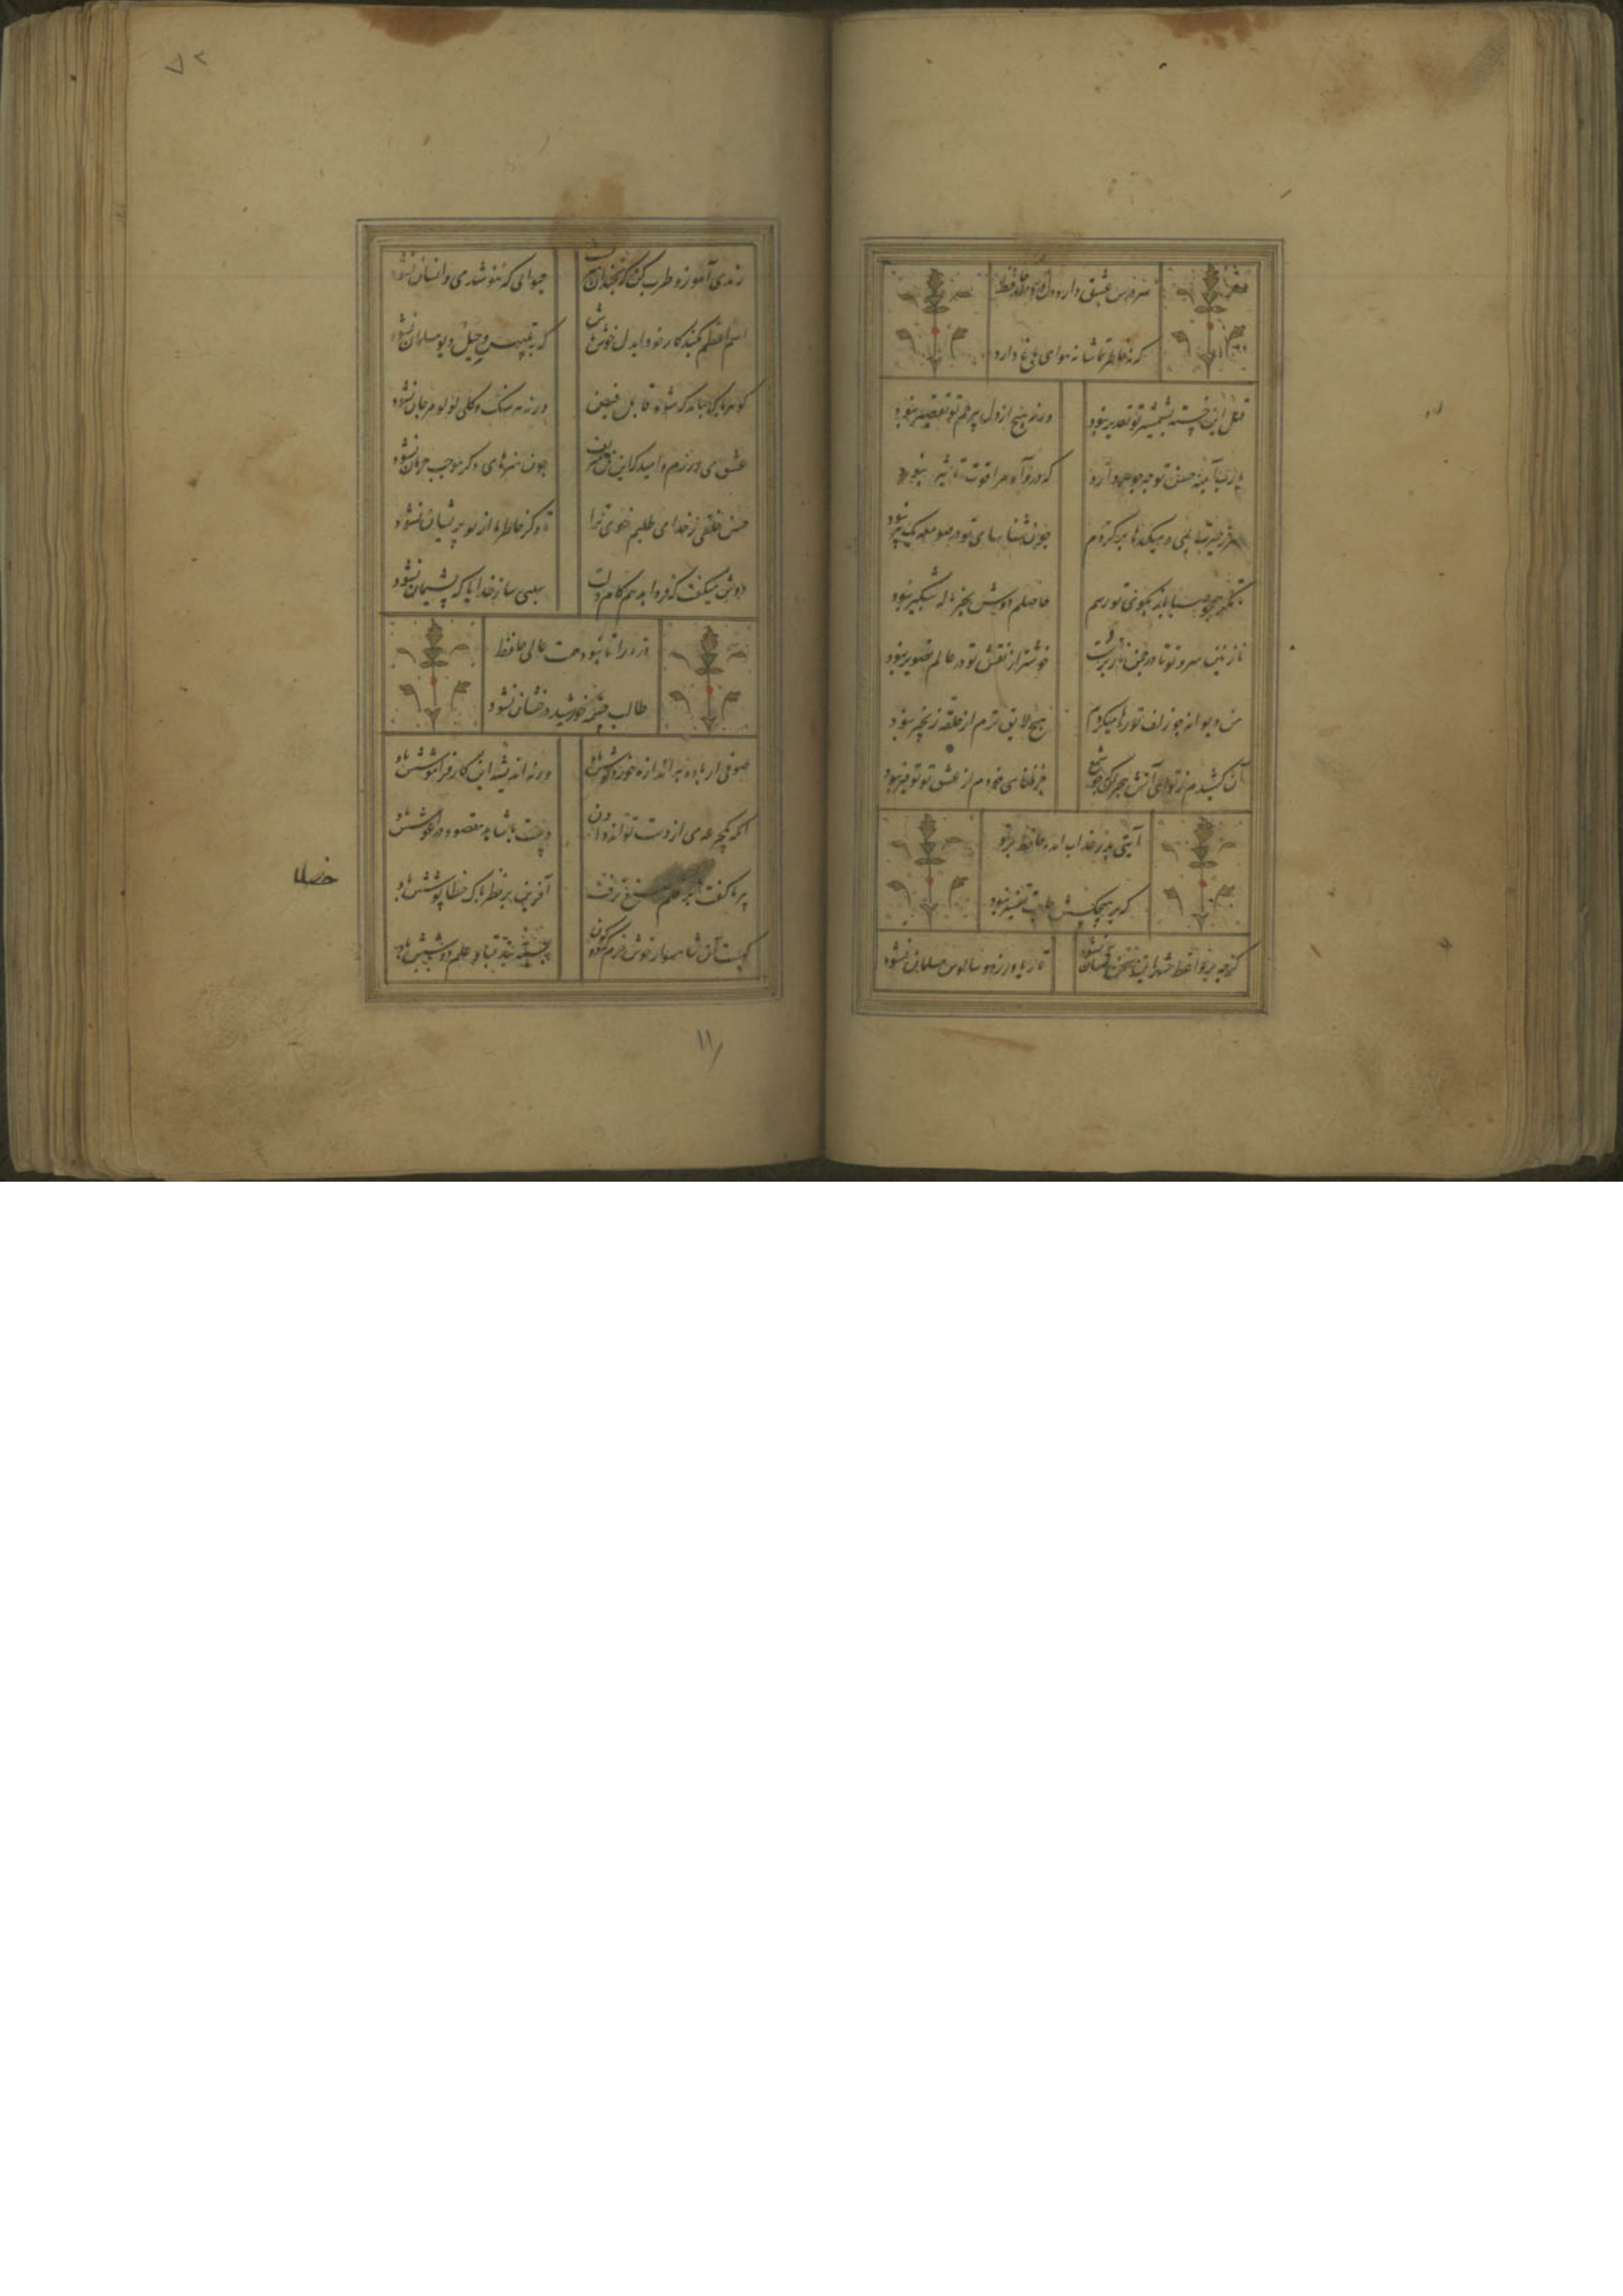 سر درس عشق دارد دل دردمند حافظ
که نه خاطر تماشا نه هوای باغ دارد
قتل این خسته بشمشیر تو تقدیر نبود
ورنه هیچ از دل بیرحم تو تقصیر نبود
یا رب آیینه حسن تو چه جوهر دارد
که درو آه مرا قوت تاثیر نبود
سر ز حیرت بدر میکدها بر کردم
چون شناسای تو در صومعه یک پیر نبود
تا مگر همچو صبا باز بکوی تو رسم
حاصلم دوش بجز ناله شبگیر نبود
نازنین سرو تو تا در چمن ناز برست
خوشتر از نقش تو در عالم تصویر نبود
من دیوانه چو زلف تو رها میکردم
هیچ لایق ترم از حلقه زنجیر نبود
آن کشیدم ز تو ای آتش هجران که چو شمع
جز فنای خودم از عشق تو توفیر نبود
آیتی بد ز عذاب انده حافظ بر تو
که بر هیچکسش حاجت تفسیر نبود
گرچه بر واعظ شهر این سخن آسان نشود
تا ریا ورزد و سالوس مسلمان نشود
۷۲
رندی آموز و طرب کن که نچندان هنرست
حیوانی که ننوشد می و انسان نشود
اسم اعظم بکند کار خود ای دل خوش باش
که به تلبیس و حیل دیو مسلمان نشود
گوهر پاک بباید که شود قابل فیض
ورنه هر سنک و گلی لولو مرجان نشود
عشق می ورزم و امید که این فن شریف
چون هنرهای دگر موجب حرمان نشود
حسن خلقی ز خدا می طلبم خوی ترا
تا دگر خاطر ما از تو پریشان نشود
دوش میکفت که فردا بدهم کام دلت
سببی ساز خدایا که پشیمان نشود
ذره را تا نبود همت عالی حافظ
طالب چشمه خورشید درخشان نشود
صوفی ار باده به اندازه خورد نوشش باد
ورنه اندیشه این کار فراموشش باد
آنکه یکجرعه می از دست تواند دادن
دست با شاهد مقصود در آغوشش باد
پیر ما کفت خطا بر قلم صنع نرفت
آفرین بر نظر پاک خطا پوشش باد
۱۱